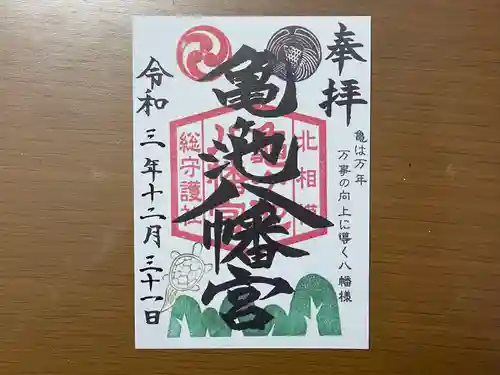 奉拝
亀は万年
万事の向上に導く八幡様
北相模
亀ヶ池
八幡宮
総守護社
亀ヶ池八幡宮
令和三年十二月三十一日